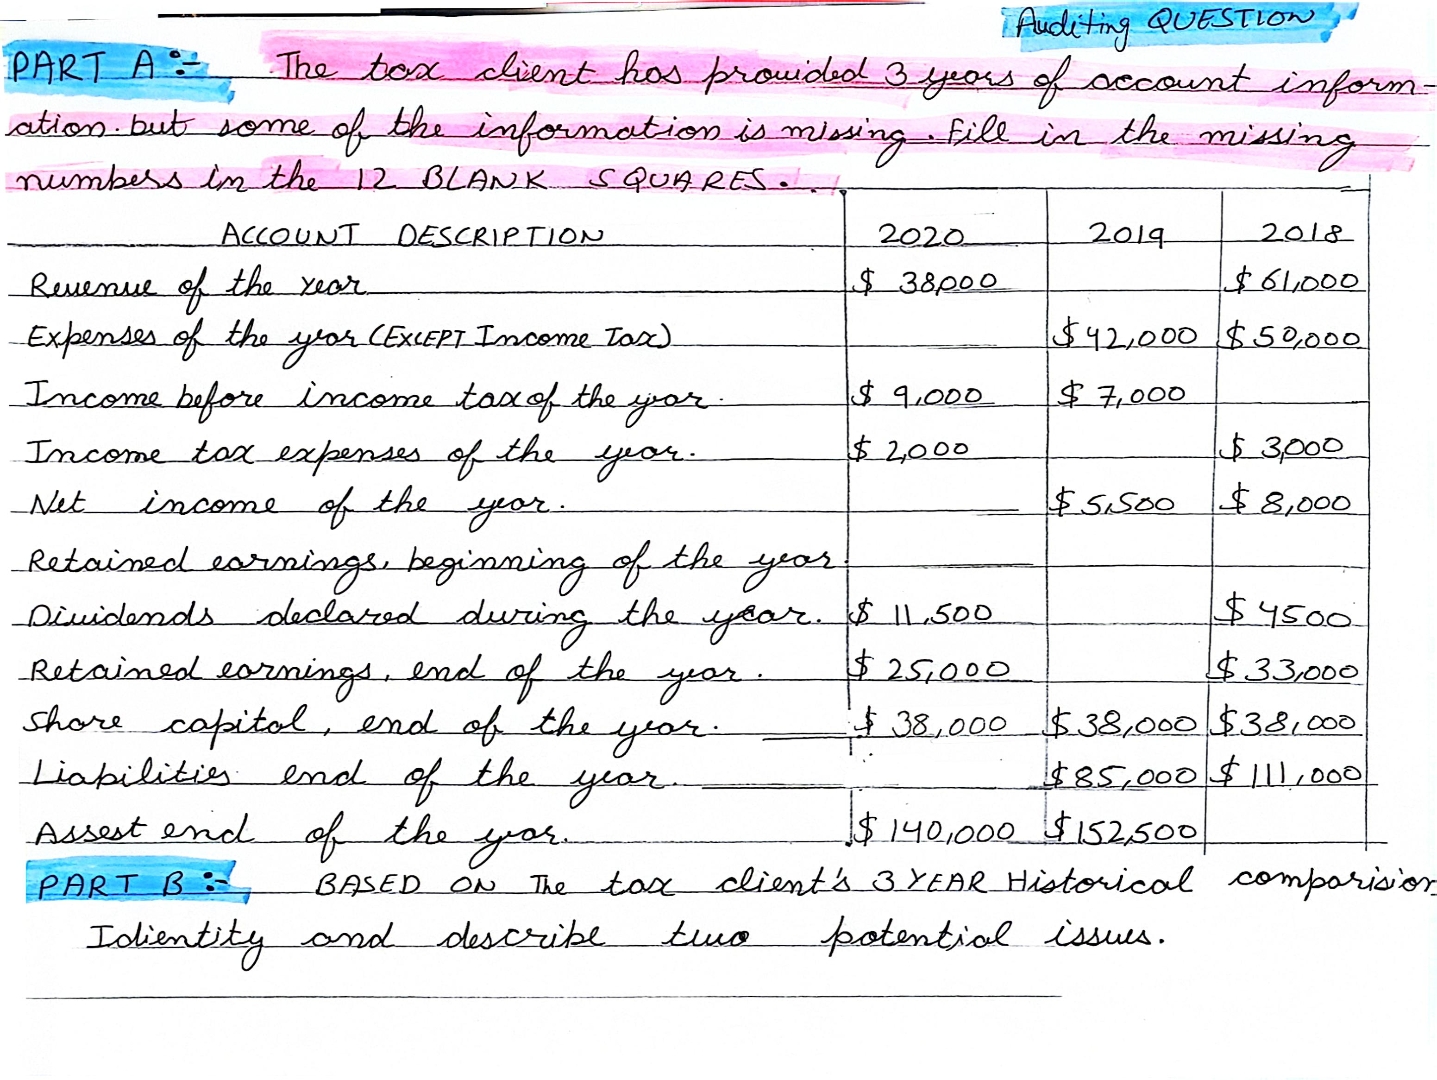 Auditing QUESTION
PART A :- The tax client has provided 3 years of account inform-
ation but some of the information is missing. Fill in the missing
numbers in the 12 BLANK SQUARES.
ACCOUNT DESCRIPTION 2020 2019 2018
Revenue of the Year $ 38,000 $ 61,000
Expenses of the year (EXCEPT Income Tax) $ 42,000 $ 50,000
Income before income tax of the year. $ 9,000 $ 7,000
Income tax expenses of the year. $ 2,000 $ 3,000
Net income of the year. $ 5,500 $ 8,000
Retained earnings, beginning of the year.
Dividends declared during the year. $ 11,500 $ 4500
Retained earnings, end of the year. $ 25,000 $ 33,000
Share capital, end of the year. $ 38,000 $ 38,000 $ 38,000
Liabilities end of the year. $ 85,000 $ 111,000
Assest end of the year. $ 140,000 $ 152,500
PART B :- BASED ON The tax client's 3 YEAR Historical comparision
Idientity and describe two potential issues.